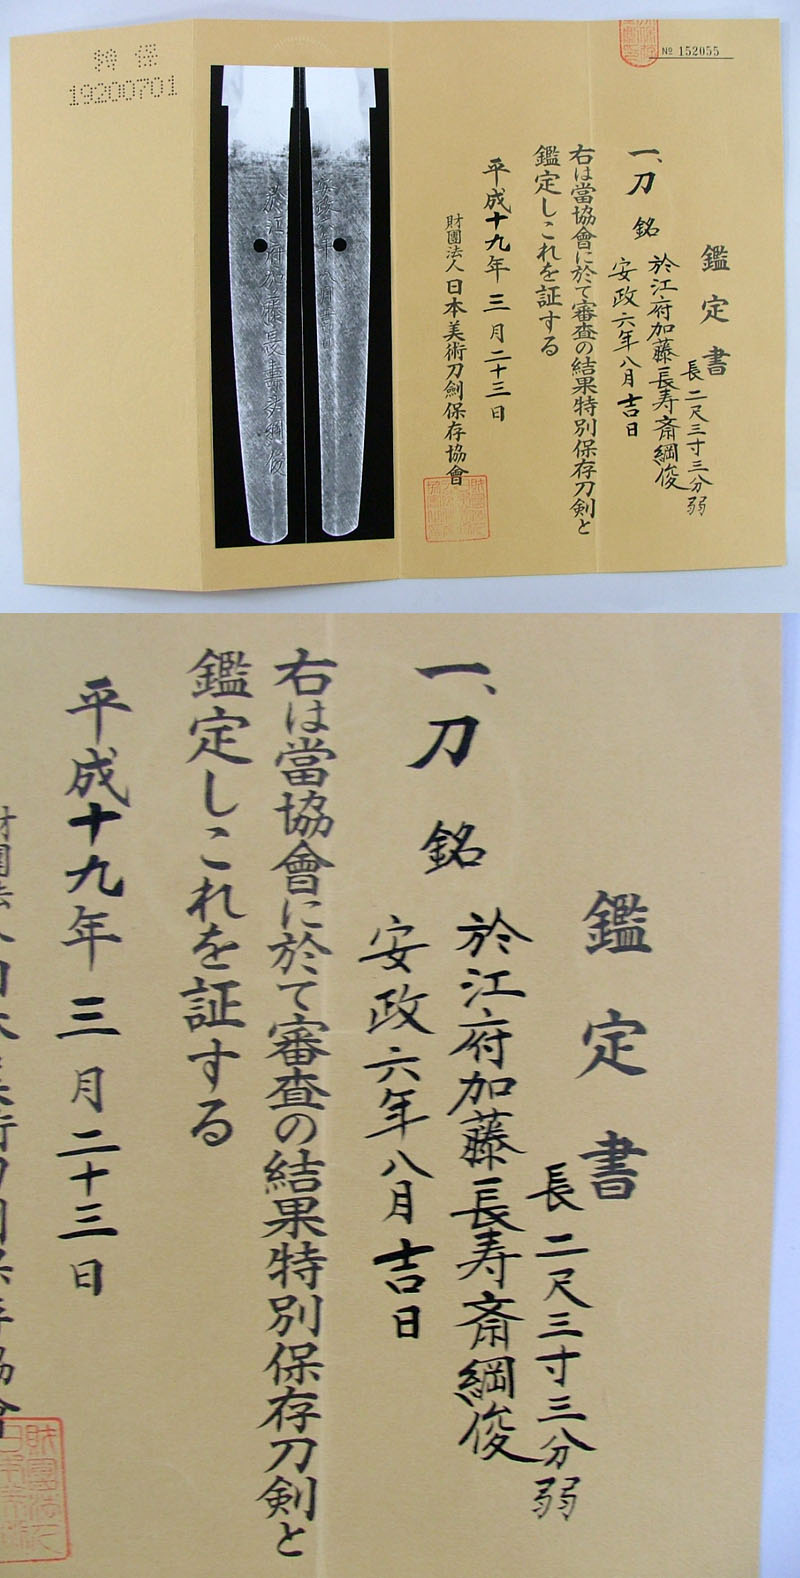 特保
19200701
№ 152055
鑑定書
長二尺三寸三分弱
一、刀 銘 於江府加藤長寿斎綱俊
安政六年八月吉日
右は當協會に於て審査の結果特別保存刀剣と
鑑定しこれを証する
平成十九年三月二十三日
財團法人日本美術刀劍保存協會
於江府加藤長壽斎綱俊
安政六年八月吉日
鑑定書
長二尺三寸三分弱
一、刀 銘 於江府加藤長寿斎綱俊
安政六年八月吉日
右は當協會に於て審査の結果特別保存刀剣と
鑑定しこれを証する
平成十九年三月二十三日